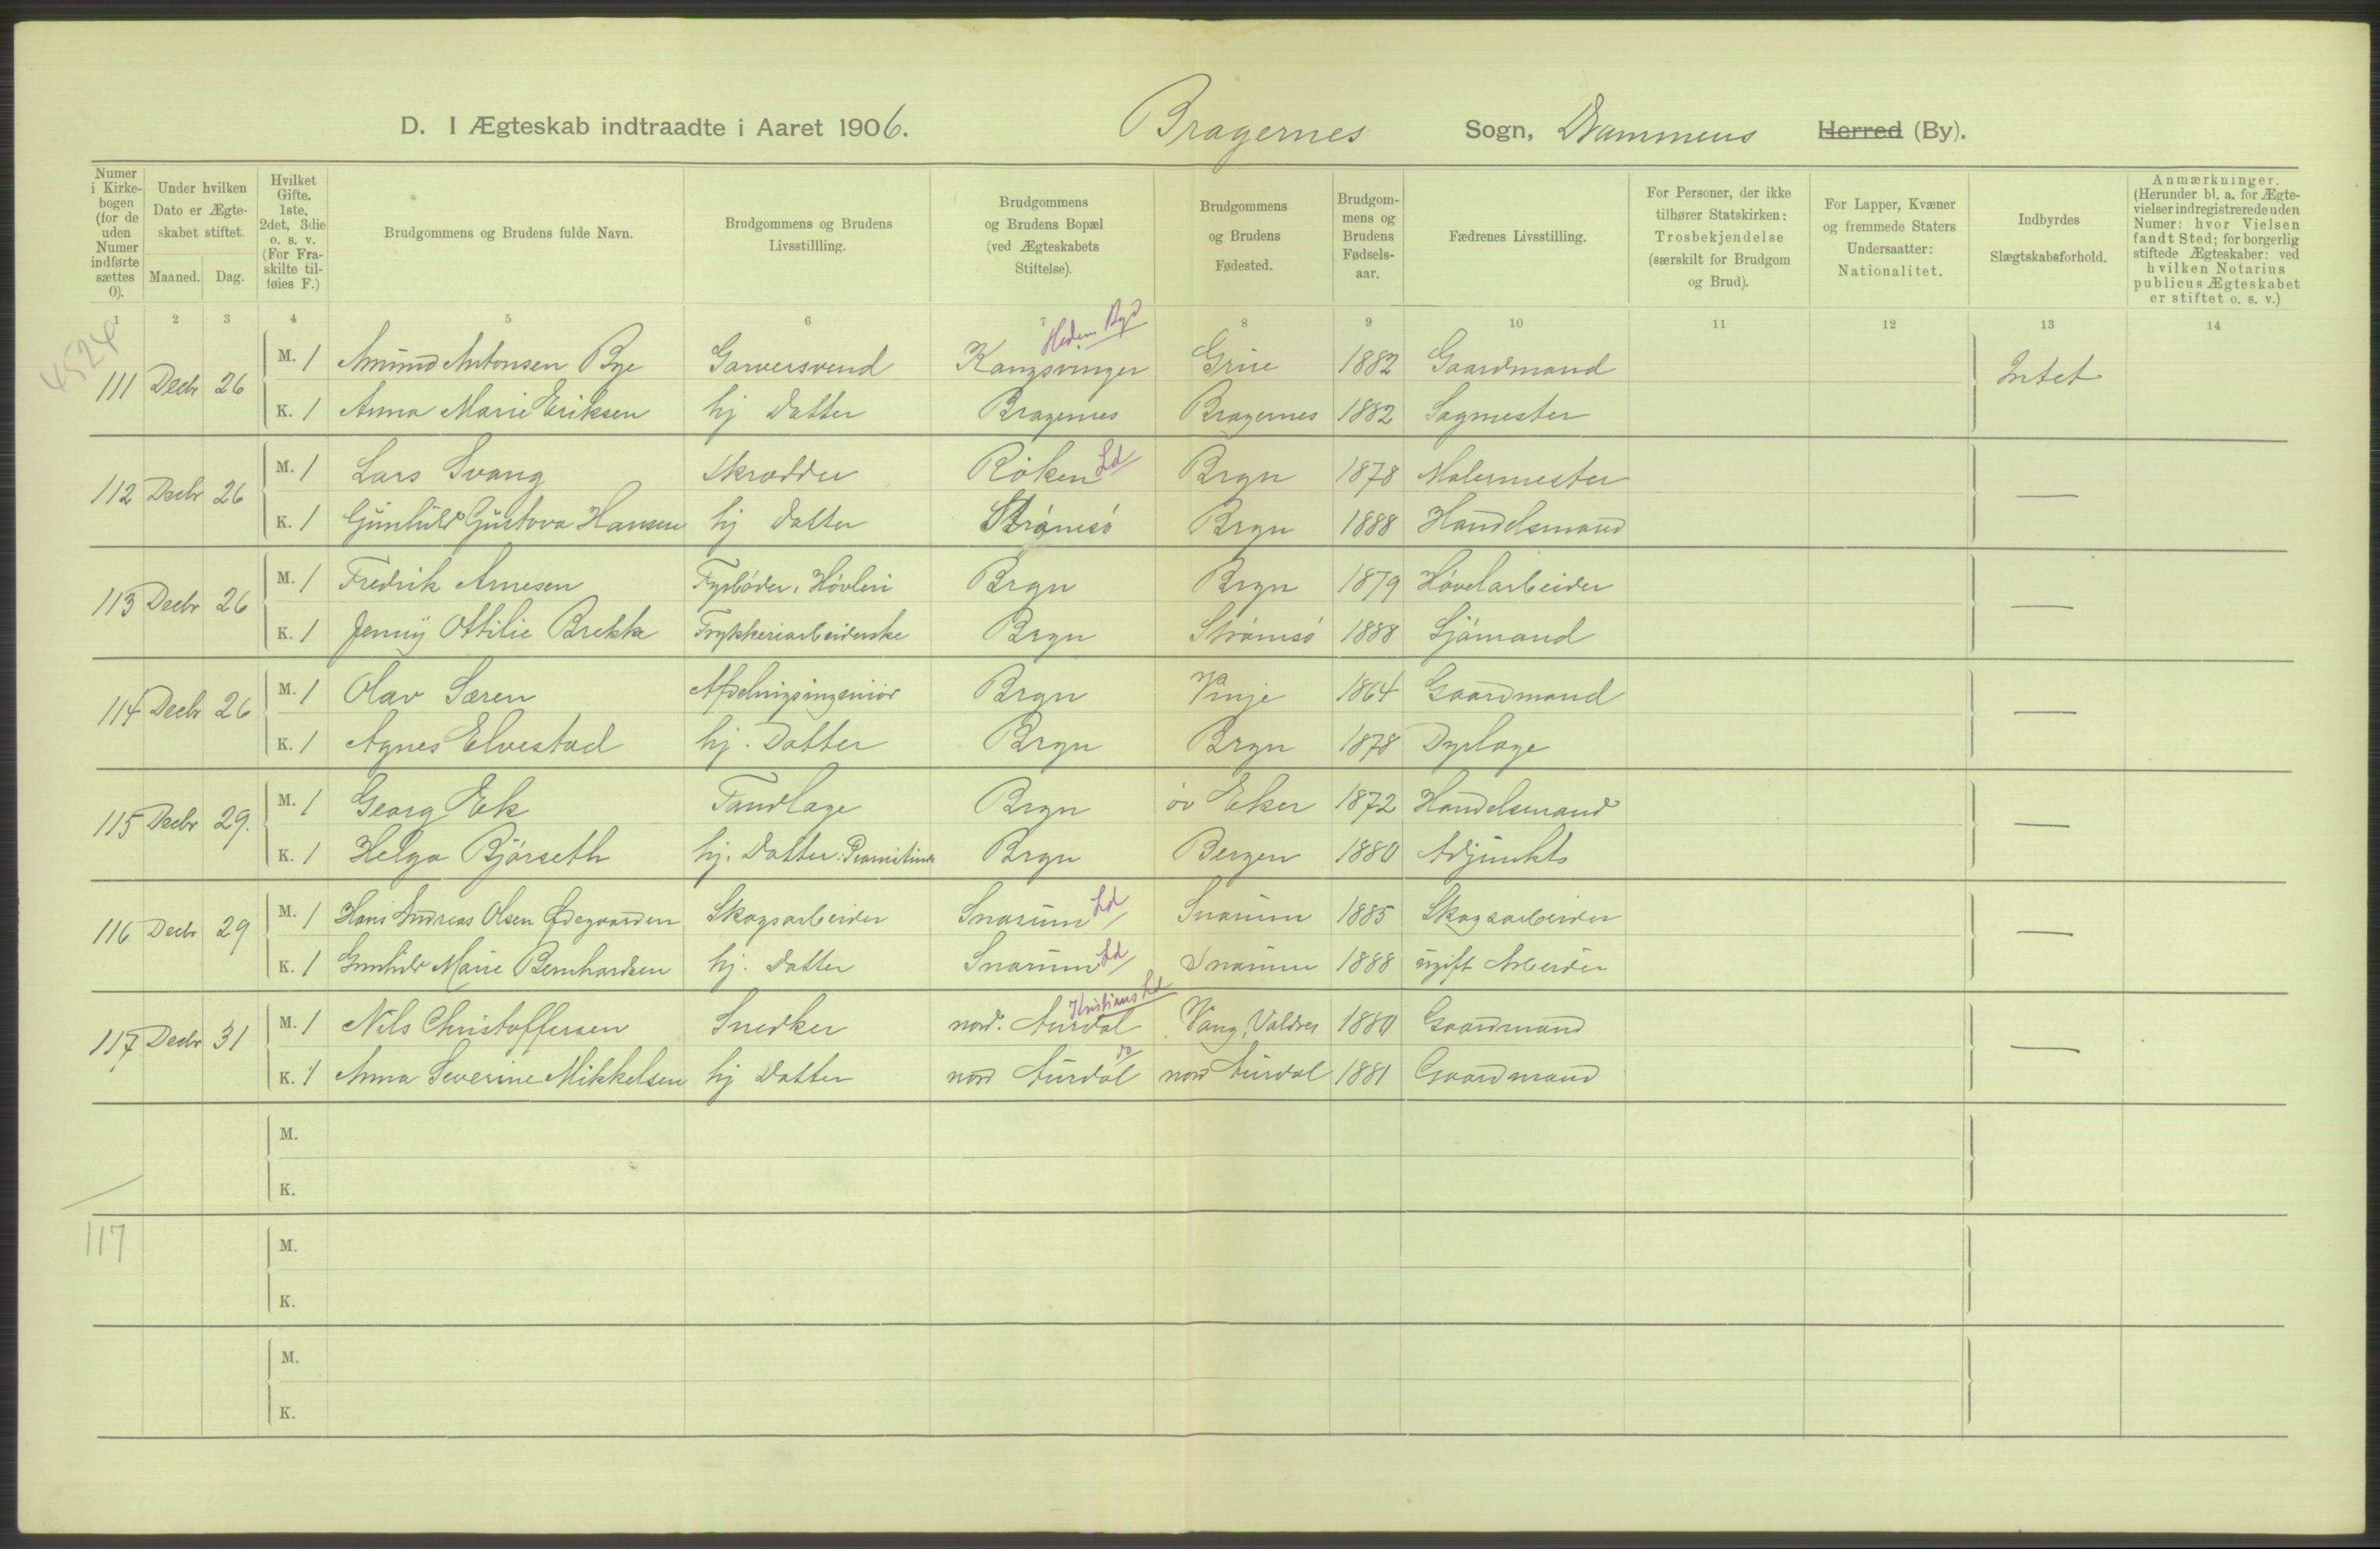 D. I Ægteskab indtraadte i Aaret 1906. Bragernes Sogn, Drammens Herred (By).
Numer i Kirkebogen (for de uden Numer indførte sættes 0).
Under hvilken Dato er Ægteskabet stiftet.
Maaned. Dag.
Hvilket Gifte. 1ste, 2det, 3die o. s. v. (For Fraskilte tilføies F.)
Brudgommens og Brudens fulde Navn.
Brudgommens og Brudens Livsstillling.
Brudgommens og Brudens Bopæl (ved Ægteskabets Stiftelse).
Brudgommens og Brudens Fødested.
Brudgommens og Brudens Fødselsaar.
Fædrenes Livsstilling.
For Personer, der ikke tilhører Statskirken: Trosbekjendelse (særskilt for Brudgom og Brud).
For Lapper, Kvæner og fremmede Staters Undersaatter: Nationalitet.
Indbyrdes Slægtskabsforhold.
Anmærkninger. (Herunder bl. a. for Ægtevielser indregistrerede uden Numer: hvor Vielsen fandt Sted; for borgerlig stiftede Ægteskaber: ved hvilken Notarius publicus Ægteskabet er stiftet o. s. v.)
1 2 3 4 5 6 7 8 9 10 11 12 13 14
4524
Hedm Byd
111 Decbr 26 M. 1 Amund Antonsen Bye Garversvend Kongsvinger Grue 1882 Gaardmand Intet
K. 1 Anna Marie Eriksen hj Datter Bragernes Bragernes 1882 Sagmester
112 Decbr 26 M. 1 Lars Svang Skrædder Røken Ld Brgn 1878 Malermester —
K. 1 Gunhild Gustava Hansen hj Datter Strømsö Brgn 1888 Handelsmand
113 Decbr 26 M. 1 Fredrik Arnesen Fyrbøder, Høvleri Brgn Brgn 1879 Høvelarbeider —
K. 1 Jenny Ottilie Brekke Trykkeriarbeiderske Brgn Strømsö 1888 Sjømand
114 Decbr 26 M. 1 Olav Særen Afdelingsingeniør Brgn Vinje 1864 Gaardmand —
K. 1 Agnes Elvestad hj. Datter Brgn Brgn 1878 Dyrlæge
115 Decbr 29. M. 1 Georg Eek Tandlæge Brgn öv Eker 1872 Handelsmand —
K. 1 Helga Bjørseth hj. Datter: Pianistinde Brgn Bergen 1880 Adjunkts
116 Decbr 29 M. 1 Hans Andreas Olsen Ødegaarden Skogsarbeider Snarum Ld Snarum 1885 Skogsarbeider —
K. 1 Gunhild Marie Bernhardsen hj. Datter Snarum Ld Snarum 1888 ugift Arbeider
Kristians Ld
117 Decbr 31 M. 1 Nils Christoffersen Snedker nord. Aurdal Vang, Valdres 1880 Gaardmand —
K. 1 Anna Severine Mikkelsen hj Datter nord Aurdal do nord Aurdal 1881 Gaardmand
M.
K.
117
M.
K.
M.
K.